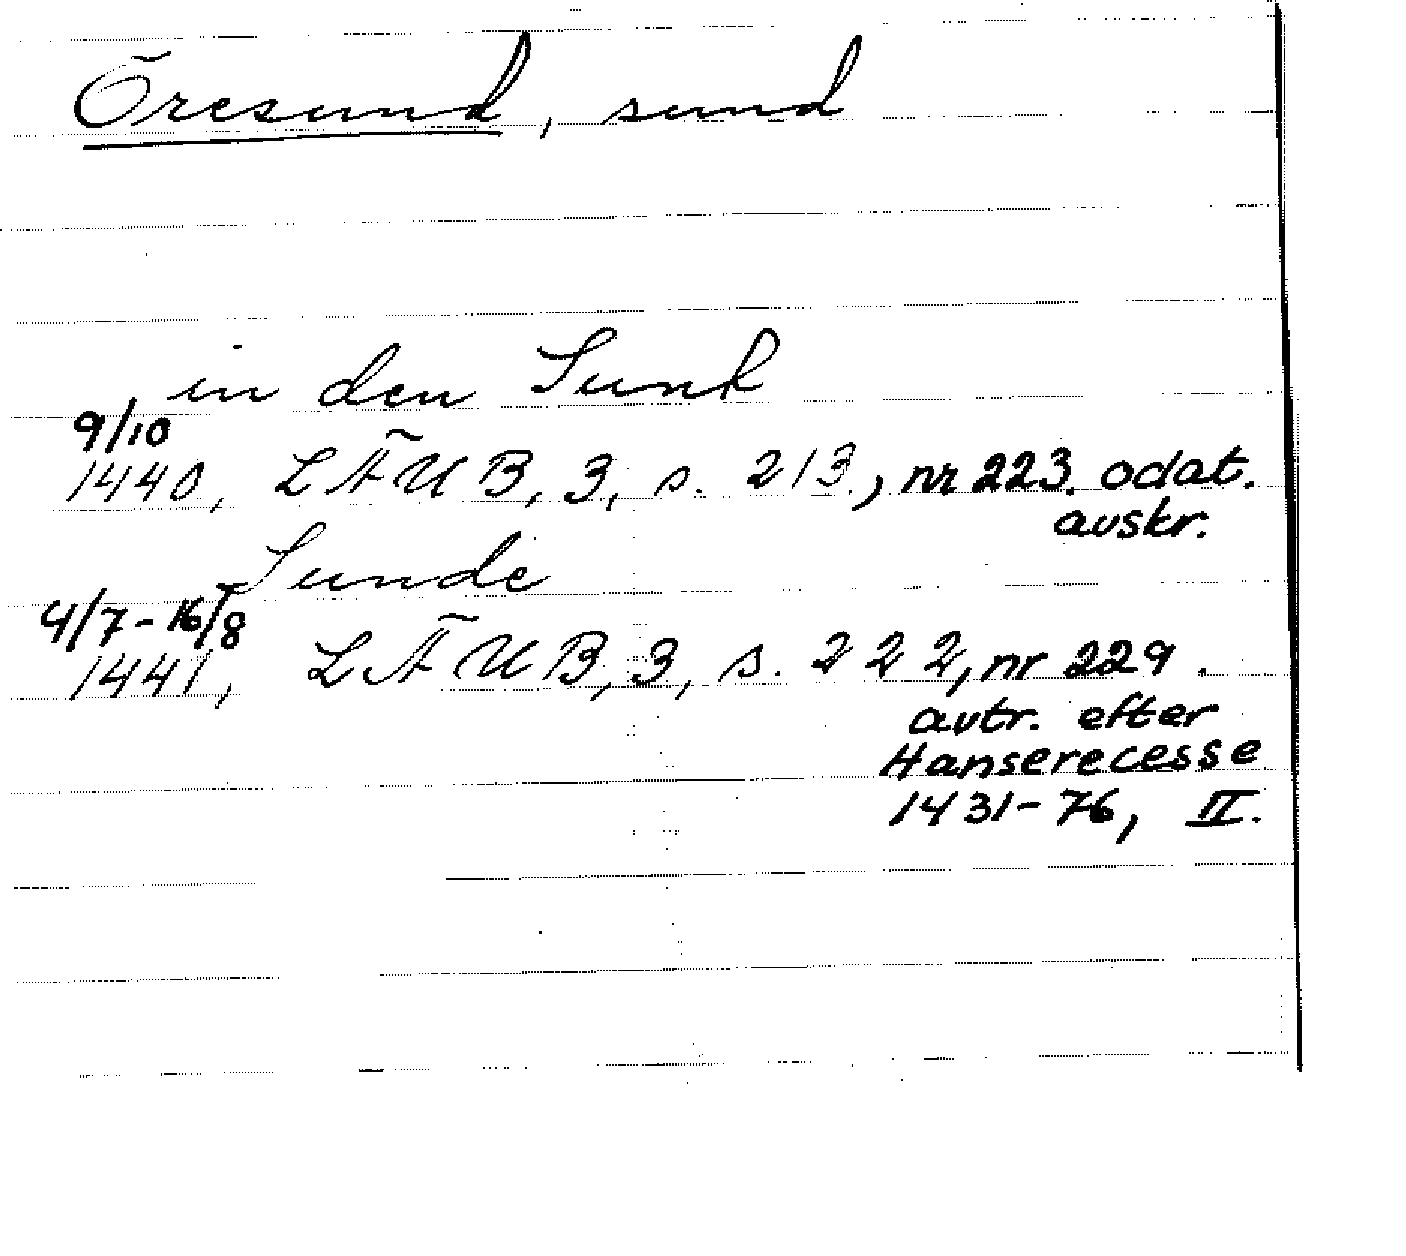 Öresund, sund
in den Sund
9/10
1440, LÄUB, 3, s. 213, nr 223. odat.
avskr.
Sunde
4/7-16/8
1441, LÄUB, 3, s. 222, nr 229.
avtr. efter
Hanserecesse
1431-76, II.